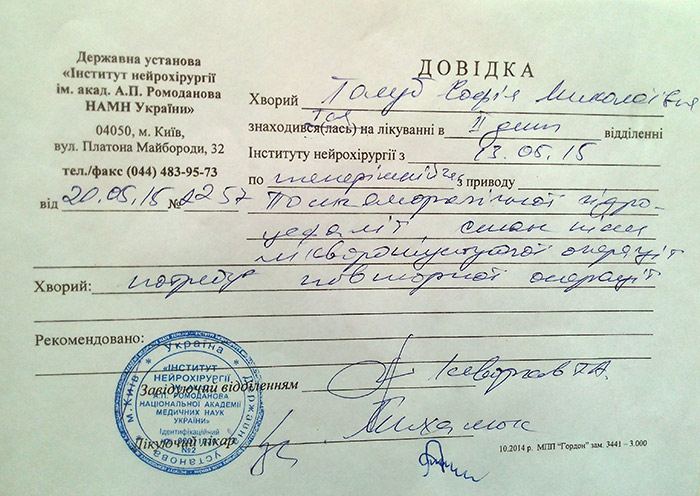 Державна установа
«Інститут нейрохірургії
ім. акад. А.П. Ромоданова
НАМН України»
04050, м. Київ,
вул. Платона Майбороди, 32
тел./факс (044) 483-95-73
від 20.05.15 №
ДОВІДКА
Хворий Голуб Софія Миколаївна
знаходився(лась) на лікуванні в відділенні
Інституту нейрохірургії з 13.05.15
по теперішній час з приводу
гідро-
цефалії, стан після
лікворошунтуючої операції
Хворий: потребує повторної операції
Рекомендовано:
Завідуючий відділенням
Лікуючий лікар
Україна
Державна установа
м. Київ
«ІНСТИТУТ
НЕЙРОХІРУРГІЇ
А.П. РОМОДАНОВА
НАЦІОНАЛЬНОЇ АКАДЕМІЇ
МЕДИЧНИХ НАУК
УКРАЇНИ»
Ідентифікаційний
№2
10.2014 р. МПП "Гордон" зам. 3441 – 3.000